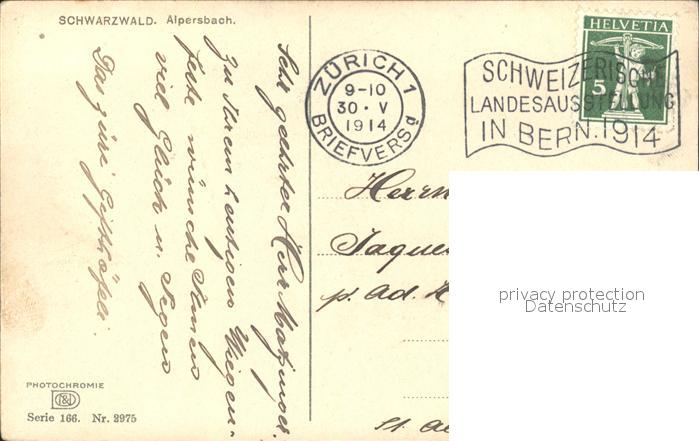 SCHWARZWALD. Alpersbach.
Sehr geehrter Herr
Zu Ihrem heutigen Wiegen-
feste wünsche Ihnen
viel Glück u. Segen
Das
ZÜRICH 1
9-10
30 · V
1914
BRIEFVERSd
HELVETIA
5
SCHWEIZERISCHE
LANDESAUSSTELLUNG
IN BERN.1914
Herrn
Jaques
p. Ad. H
St.
privacy protection
Datenschutz
PHOTOCHROMIE
Serie 166. Nr. 2975